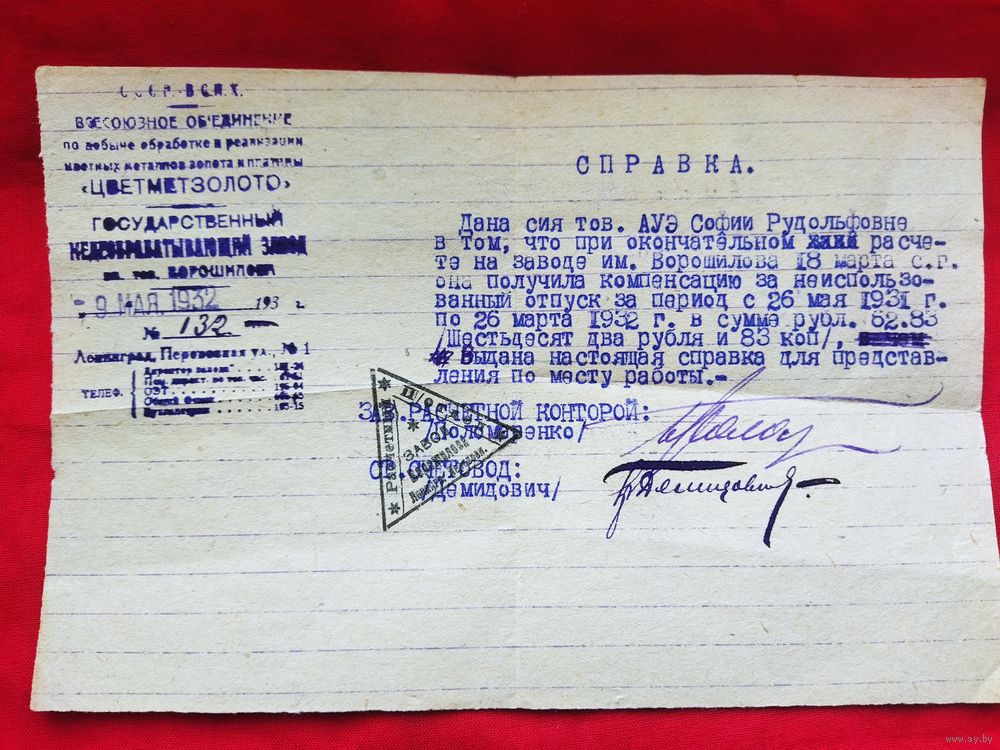 С.С.С.Р. В.С.Н.Х.
ВСЕСОЮЗНОЕ ОБ'ЕДИНЕНИЕ
по добыче обработке и реализации
цветных металлов золота и платины
«ЦВЕТМЕТЗОЛОТО»
ГОСУДАРСТВЕННЫЙ
МЕДЕОБРАБАТЫВАЮЩИЙ ЗАВОД
им. тов. ВОРОШИЛОВА
9 МАЯ 1932 193 г.
№ 132
Ленинград, Перевозная ул., № 1
ТЕЛЕФ.
Директор завода
Пом. директ. по тех. час.
Общий отдел
Бухгалтерия
СПРАВКА.
Дана сия тов. АУЭ Софии Рудольфовне
в том, что при окончательном расче-
те на заводе им. Ворошилова 18 марта с.г.
она получила компенсацию за неиспользо-
ванный отпуск за период с 26 мая 1931 г.
по 26 марта 1932 г. в сумме рубл. 62.83
/Шестьдесят два рубля и 83 коп/,
Выдана настоящая справка для представ-
ления по месту работы.-
ЗАВ.РАСЧЕТНОЙ КОНТОРОЙ:
/Поломаренко/
СТ.СЧЕТОВОД:
/Демидович/
Расчетный
ЗАВОД
Ворошилова
Демидович
www.ay.by